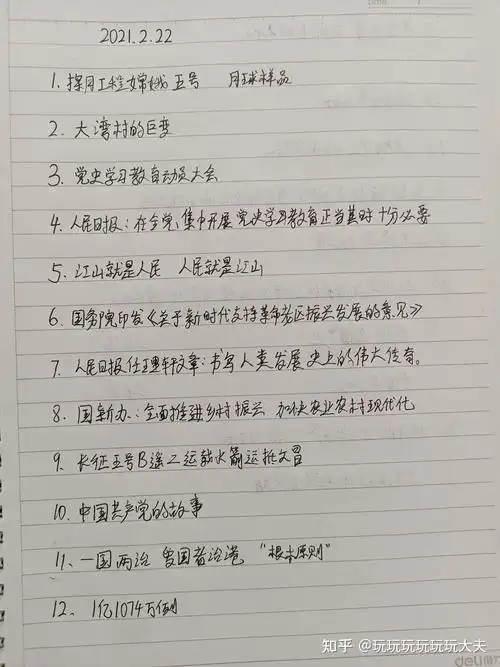 Date
2021.2.22
1. 探月工程嫦娥五号 月球样品
2. 大湾村的巨变
3. 党史学习教育动员大会
4. 人民日报：在全党集中开展党史学习教育正当其时 十分必要
5. 江山就是人民 人民就是江山
6. 国务院印发《关于新时代支持革命老区振兴发展的意见》
7. 人民日报任理轩文章：书写人类发展史上的伟大传奇。
8. 国新办：全面推进乡村振兴 加快农业农村现代化
9. 长征五号B遥二运载火箭运抵文昌
10. 中国共产党的故事
11. 一国两治 爱国者治港 “根本原则”
12. 1亿1074万例
知乎 @玩玩玩玩玩玩大夫
deli